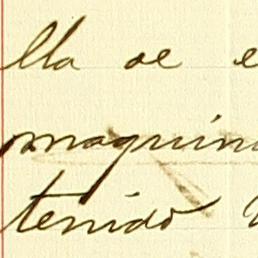 lla se e
maquin
tenido